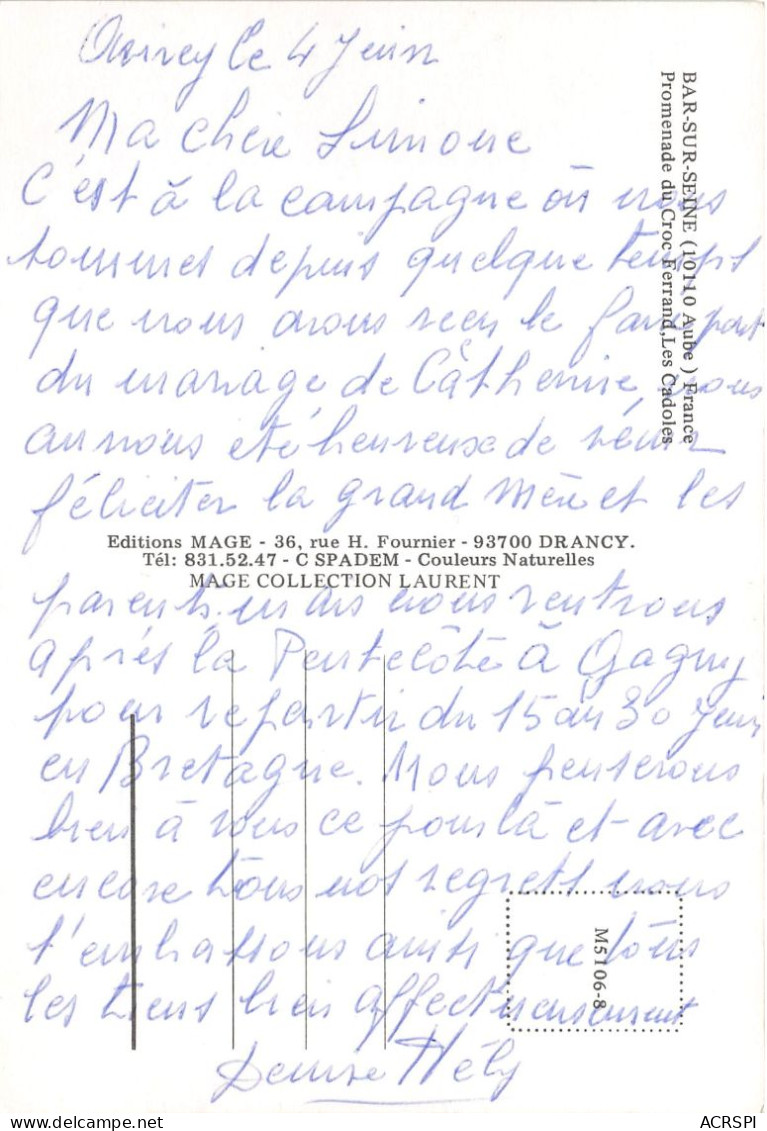 le 4 Juin
Ma chère Simone
C'est à la campagne où nous
sommes depuis quelque temps
que nous avons reçu le faire part
du mariage de Cathérine, nous
aurions été heureuse de venir
féliciter la grand Mère et les
parents. mais nous rentrons
après la Pentecôte à Gagny
pour repartir du 15 au 30 Juin
en Bretagne. Nous penserons
bien à vous ce jour là et avec
encore tous nos regrets nous
t'embrassons ainsi que tous
les tiens bien affectueusement
Denise Hély
BAR-SUR-SEINE (10110 Aube) France
Promenade du Croc Ferrand, Les Cadoles
Editions MAGE - 36, rue H. Fournier - 93700 DRANCY.
Tél: 831.52.47 - C SPADEM - Couleurs Naturelles
MAGE COLLECTION LAURENT
M5106-8
ACRSPI